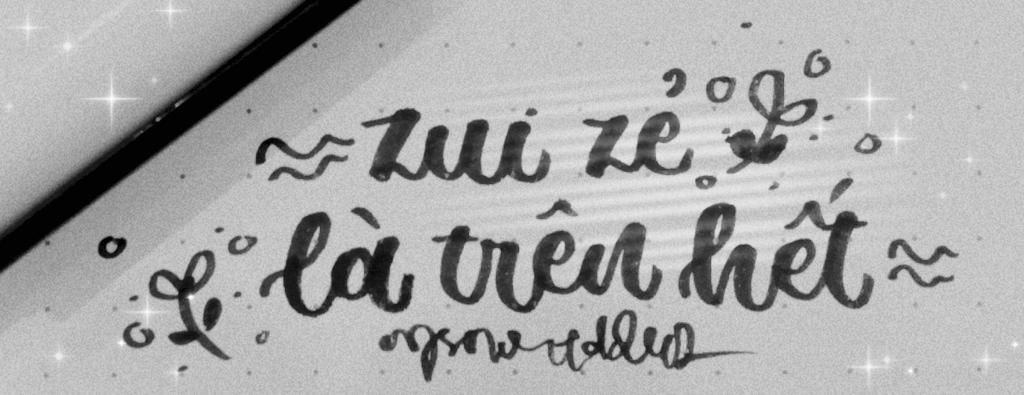 zui zẻ
là trên hết